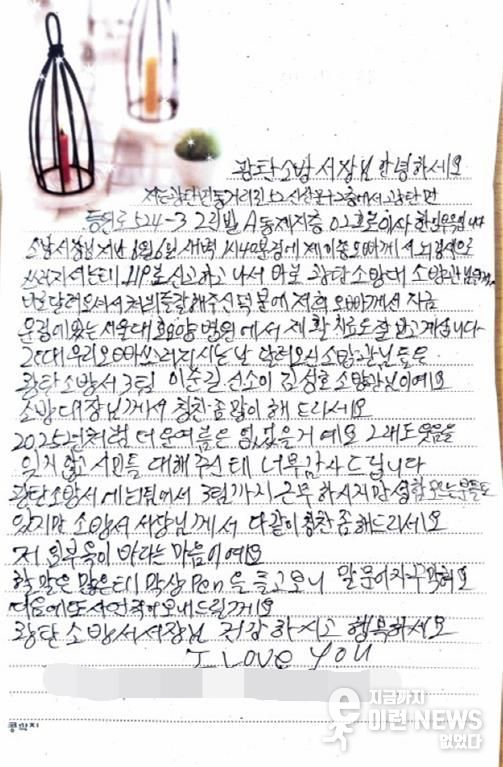 광탄소방서장님 안녕하세요
저는 광탄면
등원로524-3 2리빌 A동제지층 02호로이사 한
소방서장님 지난 1월6일 새벽 1시40분경에 제 오빠께서 뇌경색으로
쓰러지셔는데 119로 신고하고 나서 바로 광탄 소방대 소방관님
달려오셔서 처치를잘해주신덕분에 저희 오빠께서 지금
운정에있는 서울대효요양병원에서 재활치료도 잘 받고계십니다
그런데 우리오빠쓰러지시는날 달려오신 소방관님들은
광탄소방서3팀 이순길 선소이 김성호 소방관님이예요
소방대장님께서 칭찬좀많이해드리세요
2025년처럼 더운여름은 없었을거예요 그래도 웃음을
잊지않고 시민들 대해주신테 너무감사드립니다
광탄소방서에는 1팀에서 3팀까지 근무하시지만 성함모르는분들도
있지만 소방서 서장님께서 다같이 칭찬좀해드리세요
저 원부욱이 바라는 마음이예요
할말은 많은데 막상 Pen을 들고보니 말문이자꾸막혀요
다음에또사연적어보내드릴게요
광탄소방서서장님 건강하시고 행복하세요
I LOVE YOU
콩학지
지금까지
이런 NEWS
없었다